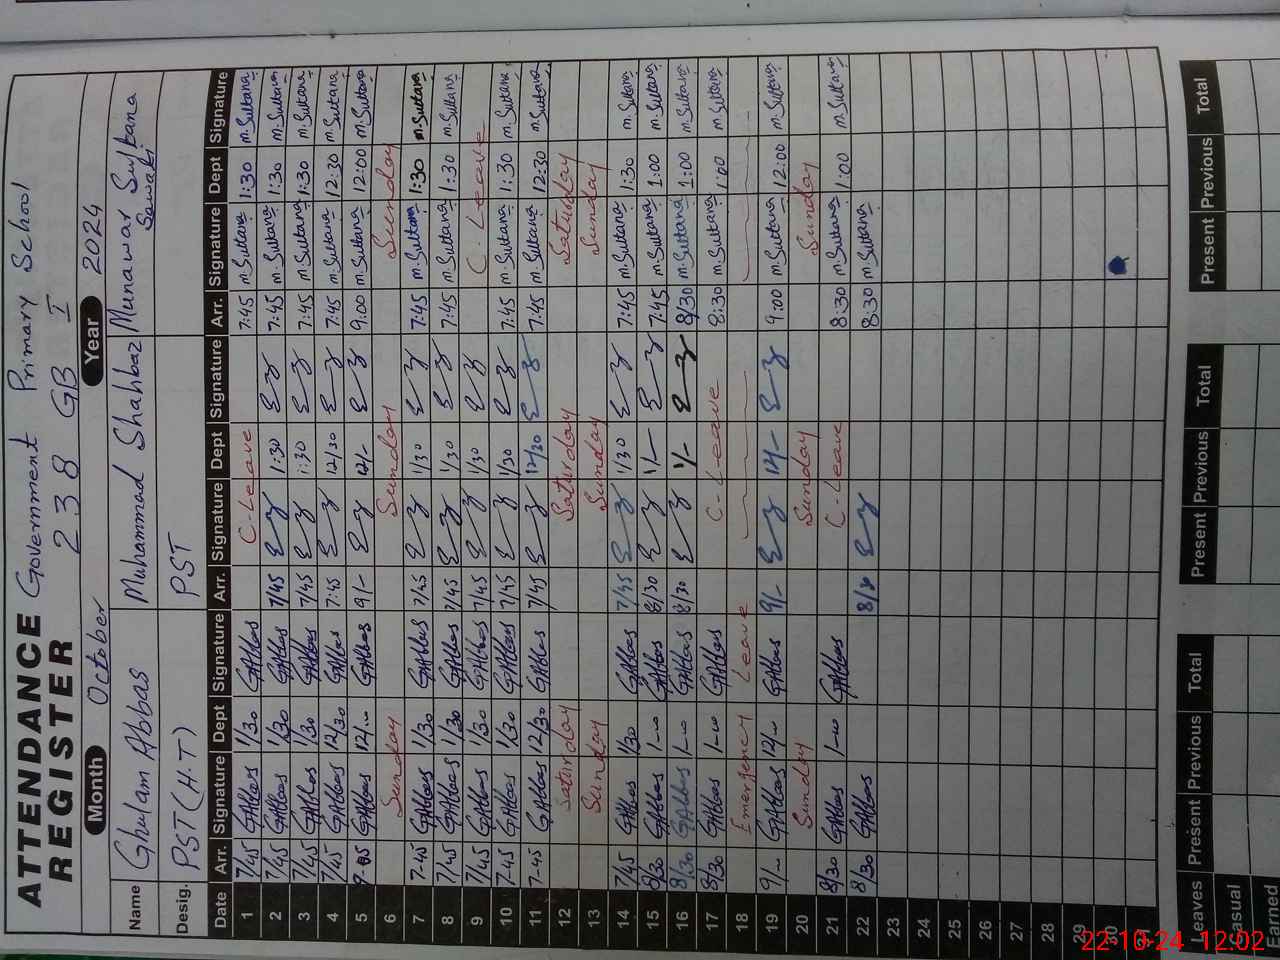 ATTENDANCE Government Primary School
REGISTER 238 GB I
Month October Year 2024
Name Ghulam Abbas Muhammad Shahbaz Munawar Sultana
Desig. PST (H.T) PST
Date Arr. Signature Dept Signature Arr. Signature Dept Signature Arr. Signature Dept Signature
1 7/45 GAbbas 1/30 GAbbas C-Leave 7:45 M.Sultana 1:30 M.Sultana
2 7/45 GAbbas 1/30 GAbbas 7/45 1:30 7:45 M.Sultana 1:30 M.Sultana
3 7/45 GAbbas 1/30 GAbbas 7/45 1:30 7:45 M.Sultana 1:30 M.Sultana
4 7/45 GAbbas 12/30 GAbbas 7:45 12/30 7:45 M.Sultana 12:30 M.Sultana
5 GAbbas 12/- GAbbas 9/- 12/- 9:00 M.Sultana 12:00 M.Sultana
6 Sunday Sunday Sunday
7 7-45 GAbbas 1/30 GAbbas 7/45 1/30 7:45 M.Sultana 1:30 M.Sultana
8 7/45 GAbbas 1/30 GAbbas 7/45 1/30 7:45 M.Sultana 1:30 M.Sultana
9 7/45 GAbbas 1/30 GAbbas 7/45 1/30 C-Leave
10 7-45 GAbbas 1/30 GAbbas 7/45 1/30 7:45 M.Sultana 1:30 M.Sultana
11 7-45 GAbbas 12/30 GAbbas 7/45 12/30 7:45 M.Sultana 12:30 M.Sultana
12 Saturday Saturday Saturday
13 Sunday Sunday Sunday
14 7/45 GAbbas 1/30 GAbbas 7/45 1/30 7:45 M.Sultana 1:30 M.Sultana
15 8/30 GAbbas 1-00 GAbbas 8/30 1/- 7:45 M.Sultana 1:00 M.Sultana
16 8/30 GAbbas 1-00 GAbbas 8/30 1/- 8/30 M.Sultana 1:00 M.Sultana
17 8/30 GAbbas 1-00 GAbbas C-Leave 8:30 M.Sultana 1:00 M.Sultana
18 Emergency Leave
19 9/- GAbbas 12/- GAbbas 9/- 12/- 9:00 M.Sultana 12:00 M.Sultana
20 Sunday Sunday Sunday
21 8/30 GAbbas 1-00 GAbbas C-Leave 8:30 M.Sultana 1:00 M.Sultana
22 8/30 GAbbas 8:30 M.Sultana
23
24
25
26
27
28
29
30
31
Leaves Present Previous Total Present Previous Total Present Previous Total
Casual
Earned
22-10-24 12:02